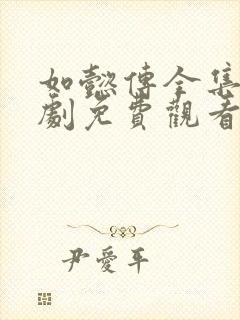 如懿傳全集
劇免費觀看
尹愛平